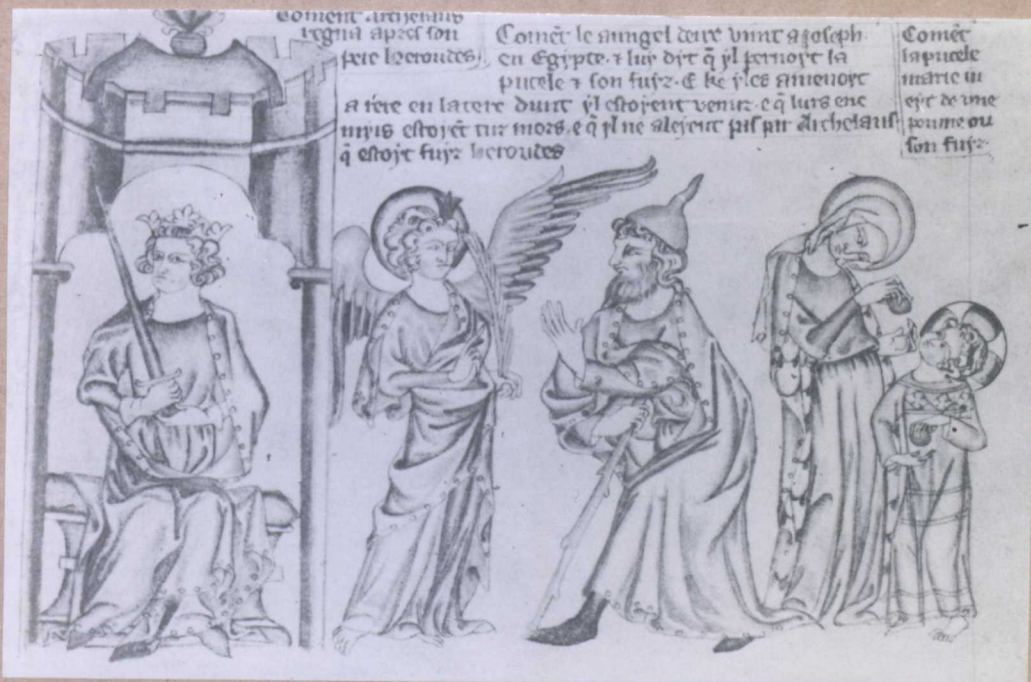 Coment Archelaus
regna apres son
pere heroudes
Comēt le aungel deux vint a Joseph
en Egypte · ⁊ luy dyt q̄ yl pernoyt la
pucele ⁊ son fuyz · E ke yles amenoyt
arere en la tere dunt yl estoyent venuz · e q̄ lurs ene
myis estoyēt tuz mors · e q̄ yl ne alejent pas par Archelaus
q̄ estoyt fuyz heroudes
Comēt
la pucele
marie iu
eyt de une
poume ou
son fuyz